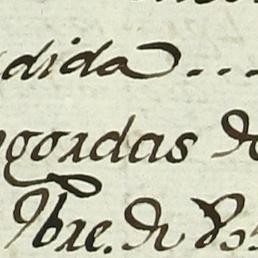 dida ....
gordas de
9bre. de 85